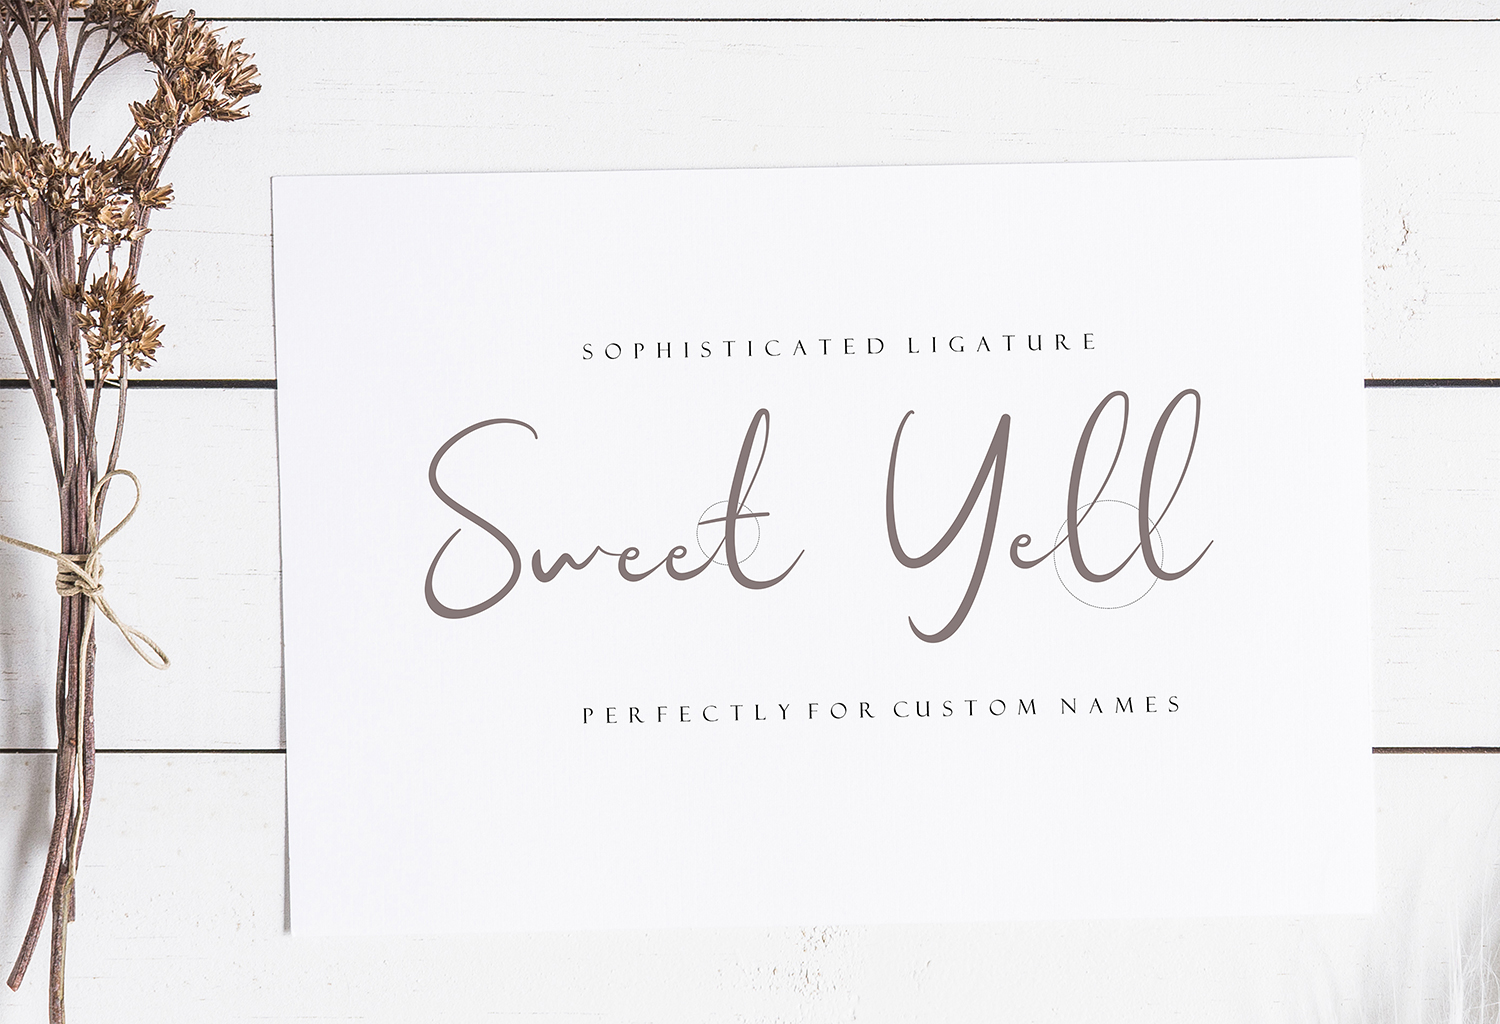 SOPHISTICATED LIGATURE
Sweet Yell
PERFECTLY FOR CUSTOM NAMES